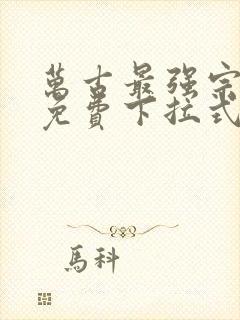 萬古最强宗
免費下拉式
馬科